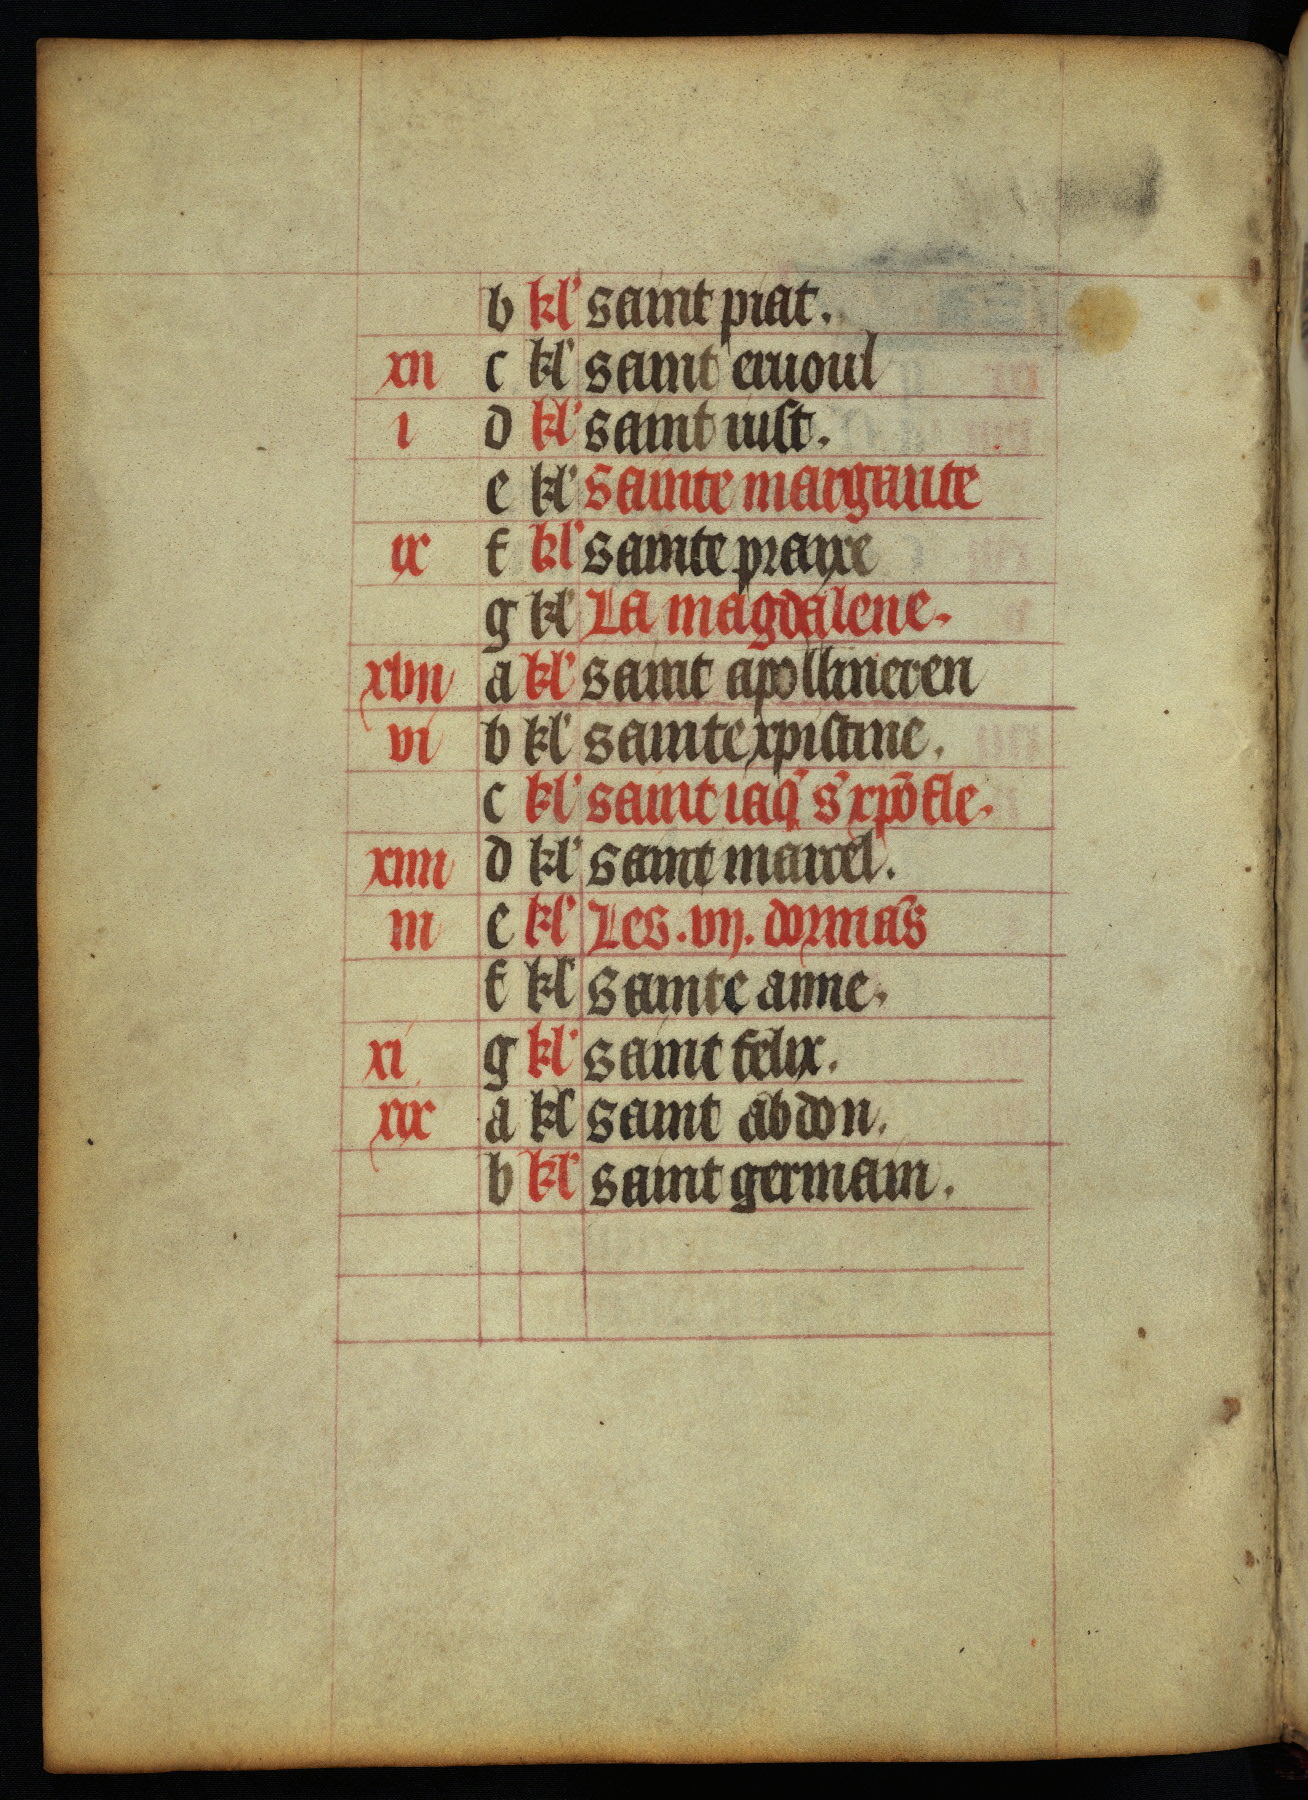 b kl' saint piat.
xii c kl' saint ernoul
i d kl' saint iust.
e kl' Sainte margarite
ix f kl' sainte praxe
g kl' La magdalene.
xvii a kl' saint apollineren
vi b kl' sainte xpistine.
c kl' saint iaq̄ s' xpōfle.
xiiii d kl' saint marcel.
iii e kl' Les .vij. dormās
f kl' Sainte anne.
xi g kl' saint felix.
xix a kl' saint abdon.
b kl' saint germain.